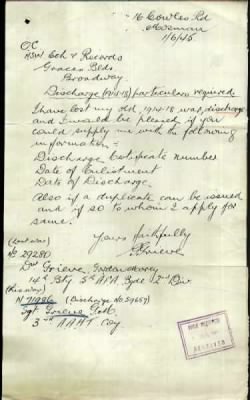 16 Cowles Rd
Mosman
1/6/45
O.C
NSW Ech & Records
Graces Bldg
Broadway.
Discharge (1914-18) particulars required
I have lost my old, 1914-18 war, discharge
and I would be pleased if you
could supply me with the following
information =
Discharge Certificate number
Date of Enlistment
Date of Discharge
Also if a duplicate can be issued
and if so to whom I apply for
same.
Yours faithfully
Grieve
(Last war)
No 29280
Dvr Grieve, Gordon
14th Bty 5th AFA Bgde 2nd Div
(This war)
N 71996 (Discharge No. 59657)
Sgt Grieve
3rd AAMT Coy
RECEIVED